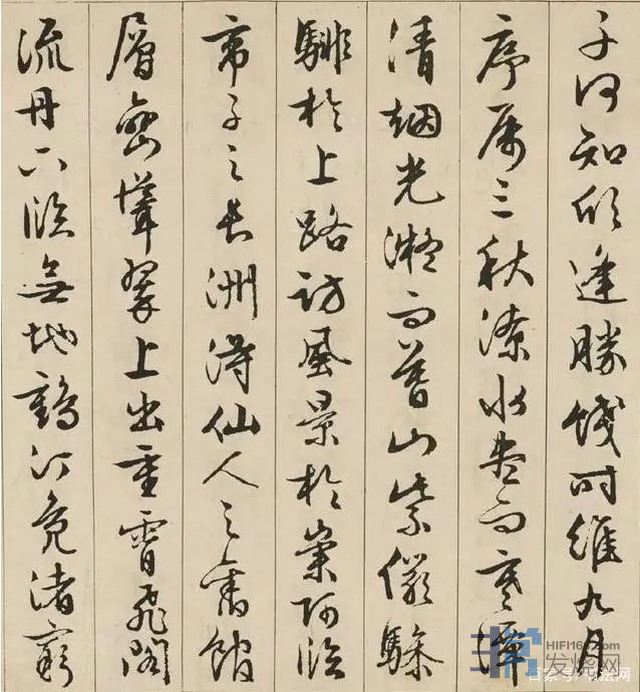 子何知欣逢勝餞時維九月
序属三秋潦水盡而寒潭
清烟光凝而暮山紫儼驂
騑於上路訪風景於崇阿臨
帝子之長洲得仙人之舊館
層巒聳翠上出重霄飛閣
流丹下臨無地鶴汀鳧渚窮
HIFI168.com
发烧网